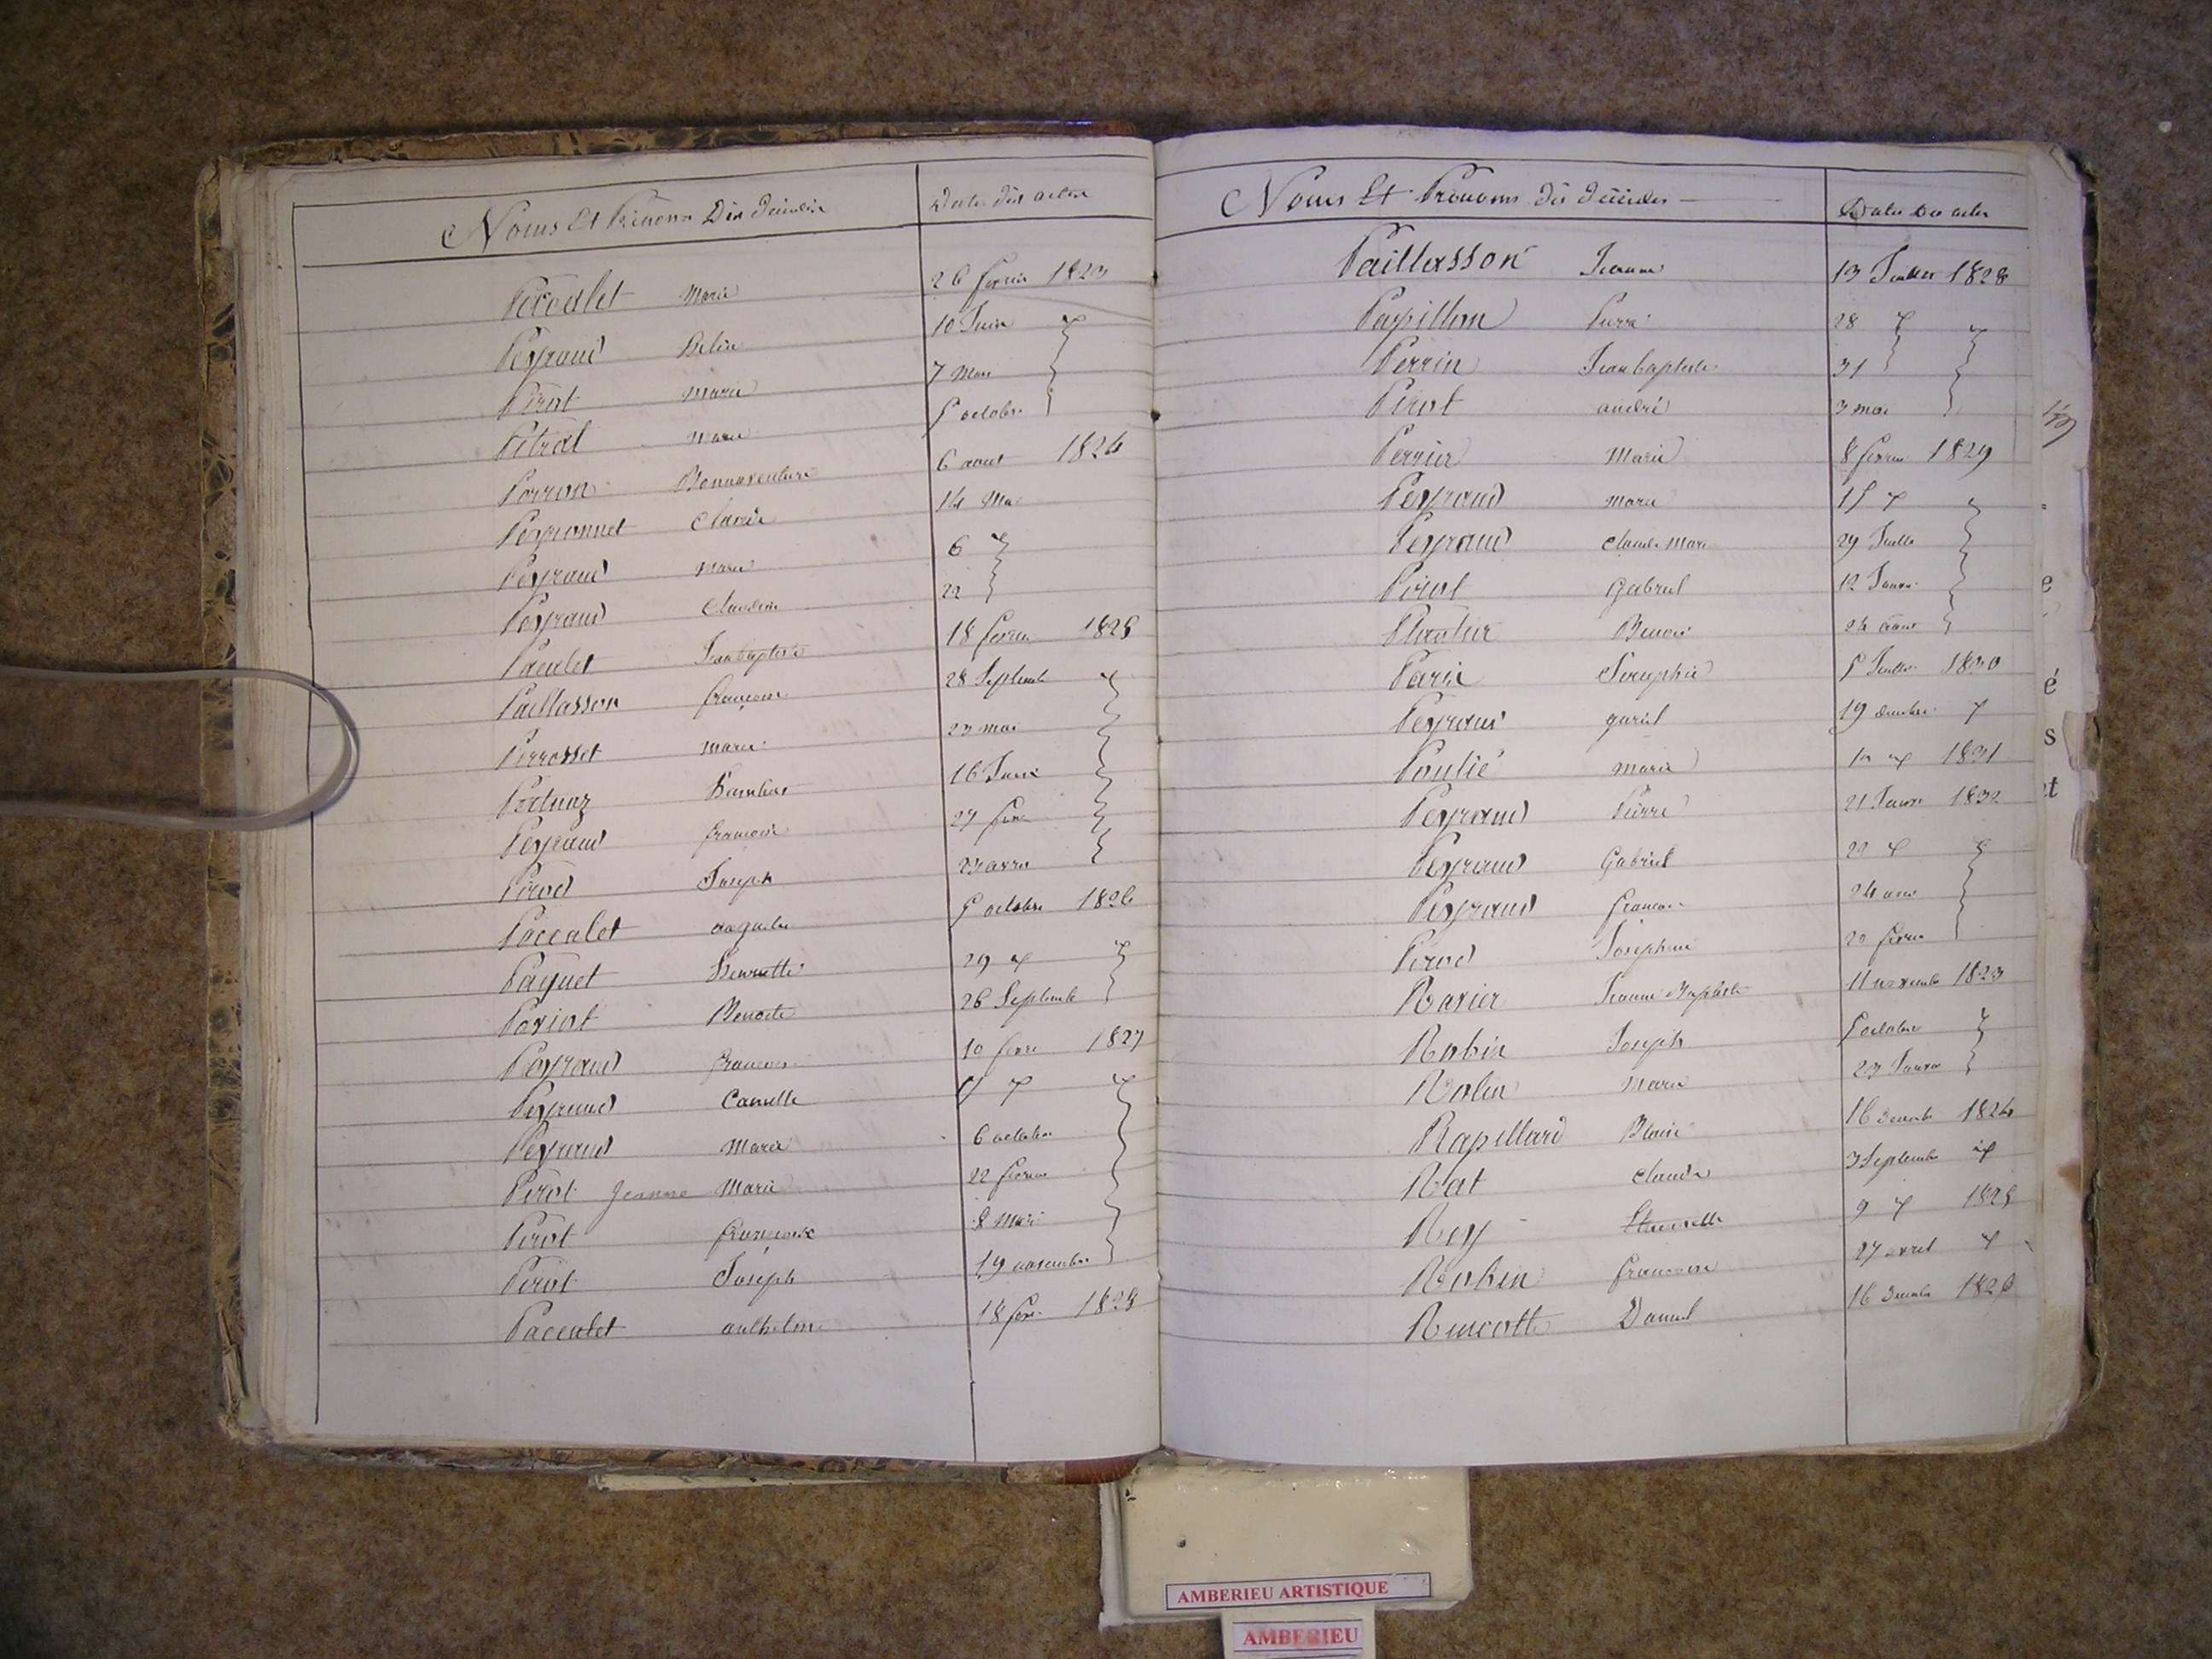 Noms Et Prénoms Des Décédés Date des actes
Peccalet Marie 26 fevrier 1823
Peysraud 10 Juin
Pirot Marie 7 Mars
Pitrat Marie 5 octobre
Porron Bonnaventure 6 aout 1824
Peyronnet Claude 14 Mai
Peyraud Marie 6
Peyraud Claudine 22
Pacalet Jeanbaptiste 18 fevrier 1825
Paillasson françoise 28 Septembre
Perrosset Marie 23 mai
Pertuaz 16
Peyraud françoise 27 fev
Pirod Joseph 23 avril
Paccalet 5 octobre 1826
Paquet Henriette 29
Pariot Benoite 26 Septembre
Peyraud françois 10 fevri 1827
Peyraud Camille 15
Peyraud Marie 6 octobre
Pirot Jeanne Marie 22 fevrier
Pirot françoise 8 Mars
Pirot Joseph 19 novembre
Paccalet anthelme 18 fevr 1828
Noms Et Prénoms des décédés Dates des actes
Paillasson Jeanne 13 Juillet 1828
Papillon Pierre 28
Perrin Jeanbaptiste 31
Pirot andré 3 mai
Perrier Marie 8 fevrier 1829
Peyraud Marie 15
Peyraud Claude Marie 29 Juillet
Pirot Gabriel 12 Janvi
Plantier Benoit 24 aout
Parix Josephie 5 Juillet 1830
Peyraud gariel 19 decembre
Poulié Marie 1831
Peyraud Pierre 21 Janvi 1832
Peyraud Gabriel 22
Peyraud françois 24
Pirod Josephine 20 fevrier
Ravier Jeanne Baptiste 11 novembre 1823
Robin Joseph 5 octobre
Rolin Marie 23 Janvier
Rapillard Blaise 16 decembre 1824
Rat Claude 3 Septembre
Rey 9 1825
Robin françoise 27 avril
Rincotti Daniel 16 Decembre 1826
e
é
s
t
AMBERIEU ARTISTIQUE
AMBERIEU